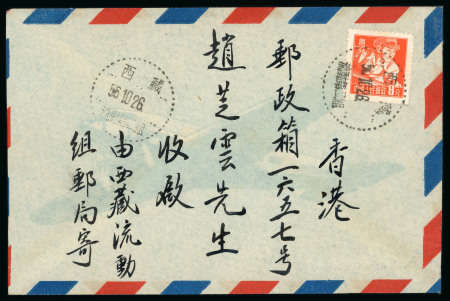 香港
郵政箱一六五七号
趙芝雲先生
收啟
由西藏流動
組郵局寄
西藏
56.10.26
8